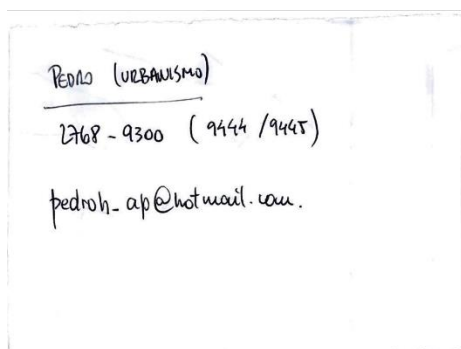 PEDRO (URBANISMO)
2768-9300 (9444/9445)
pedroh_ap@hotmail.com.